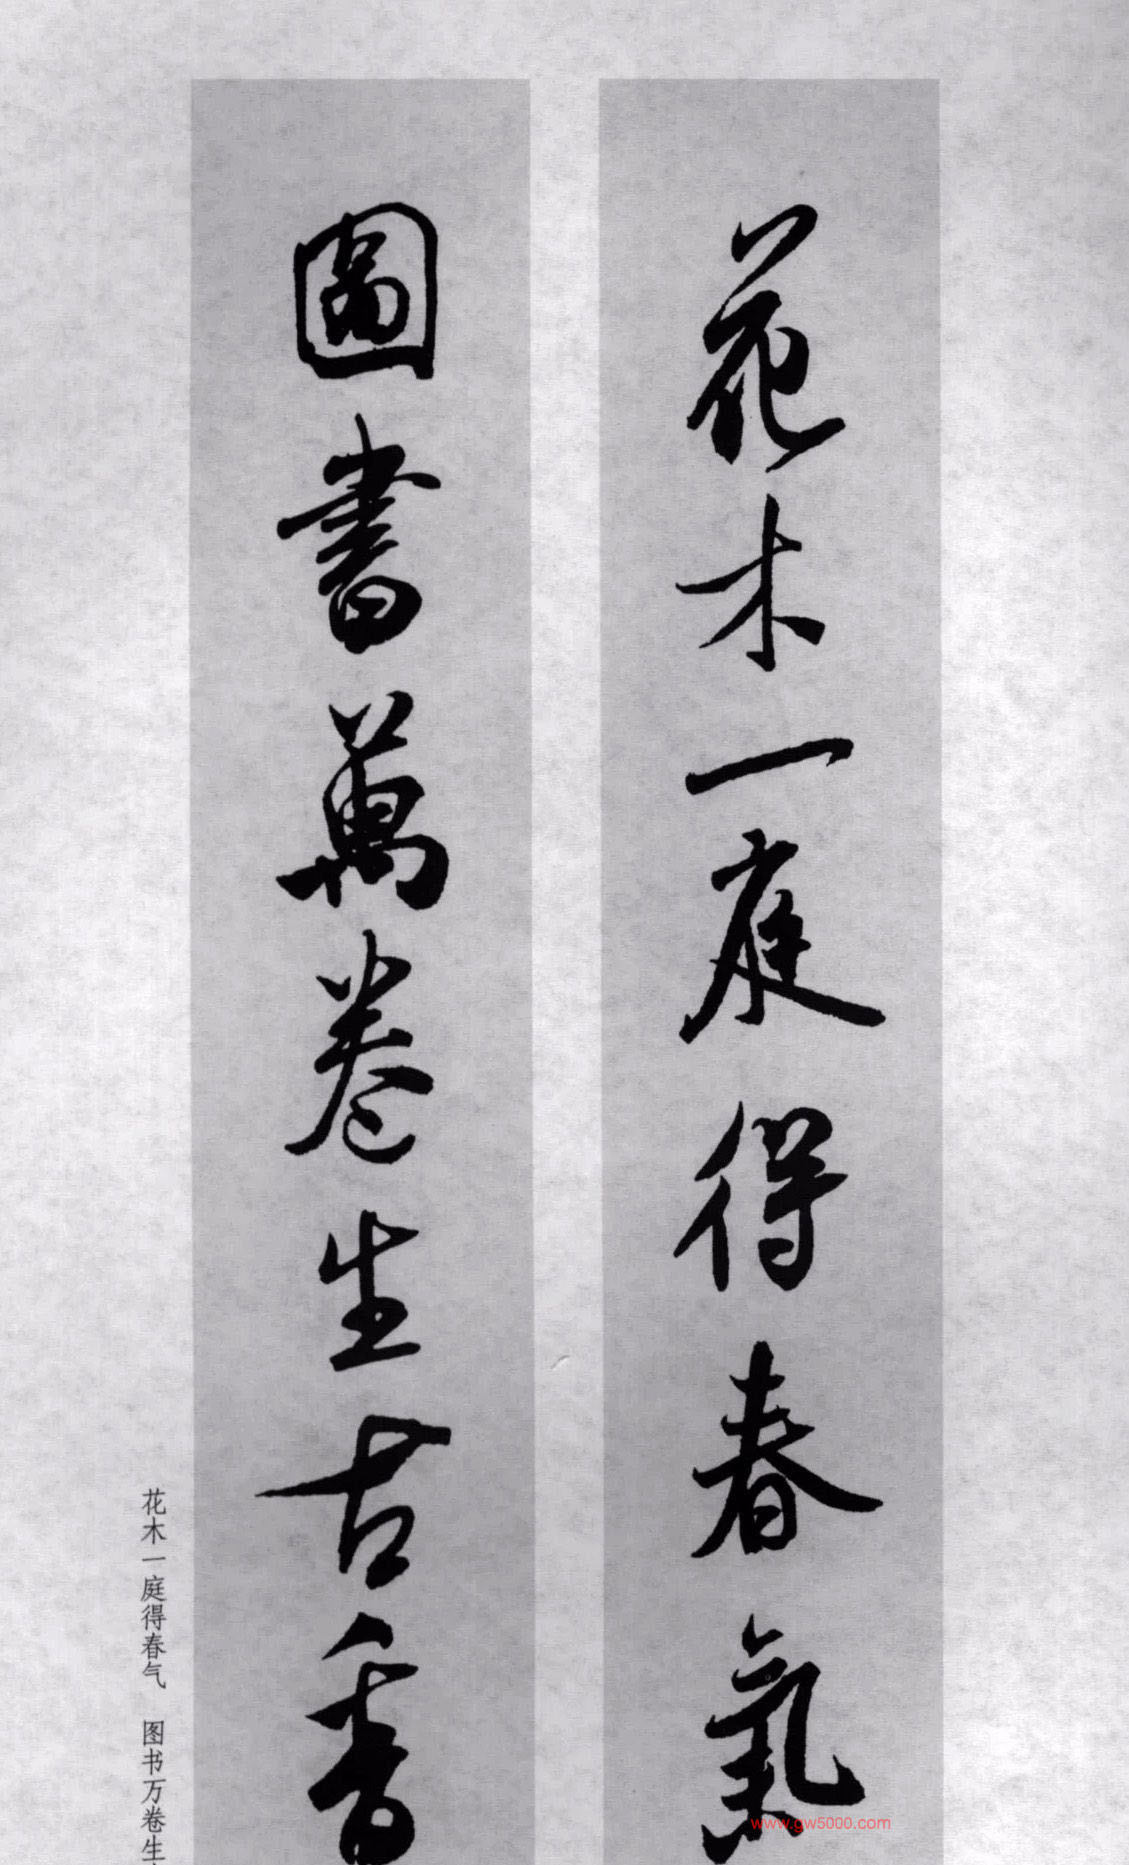 花木一庭得春氣
圖書萬卷生古香
花木一庭得春气 图书万卷生
www.gw5000.com